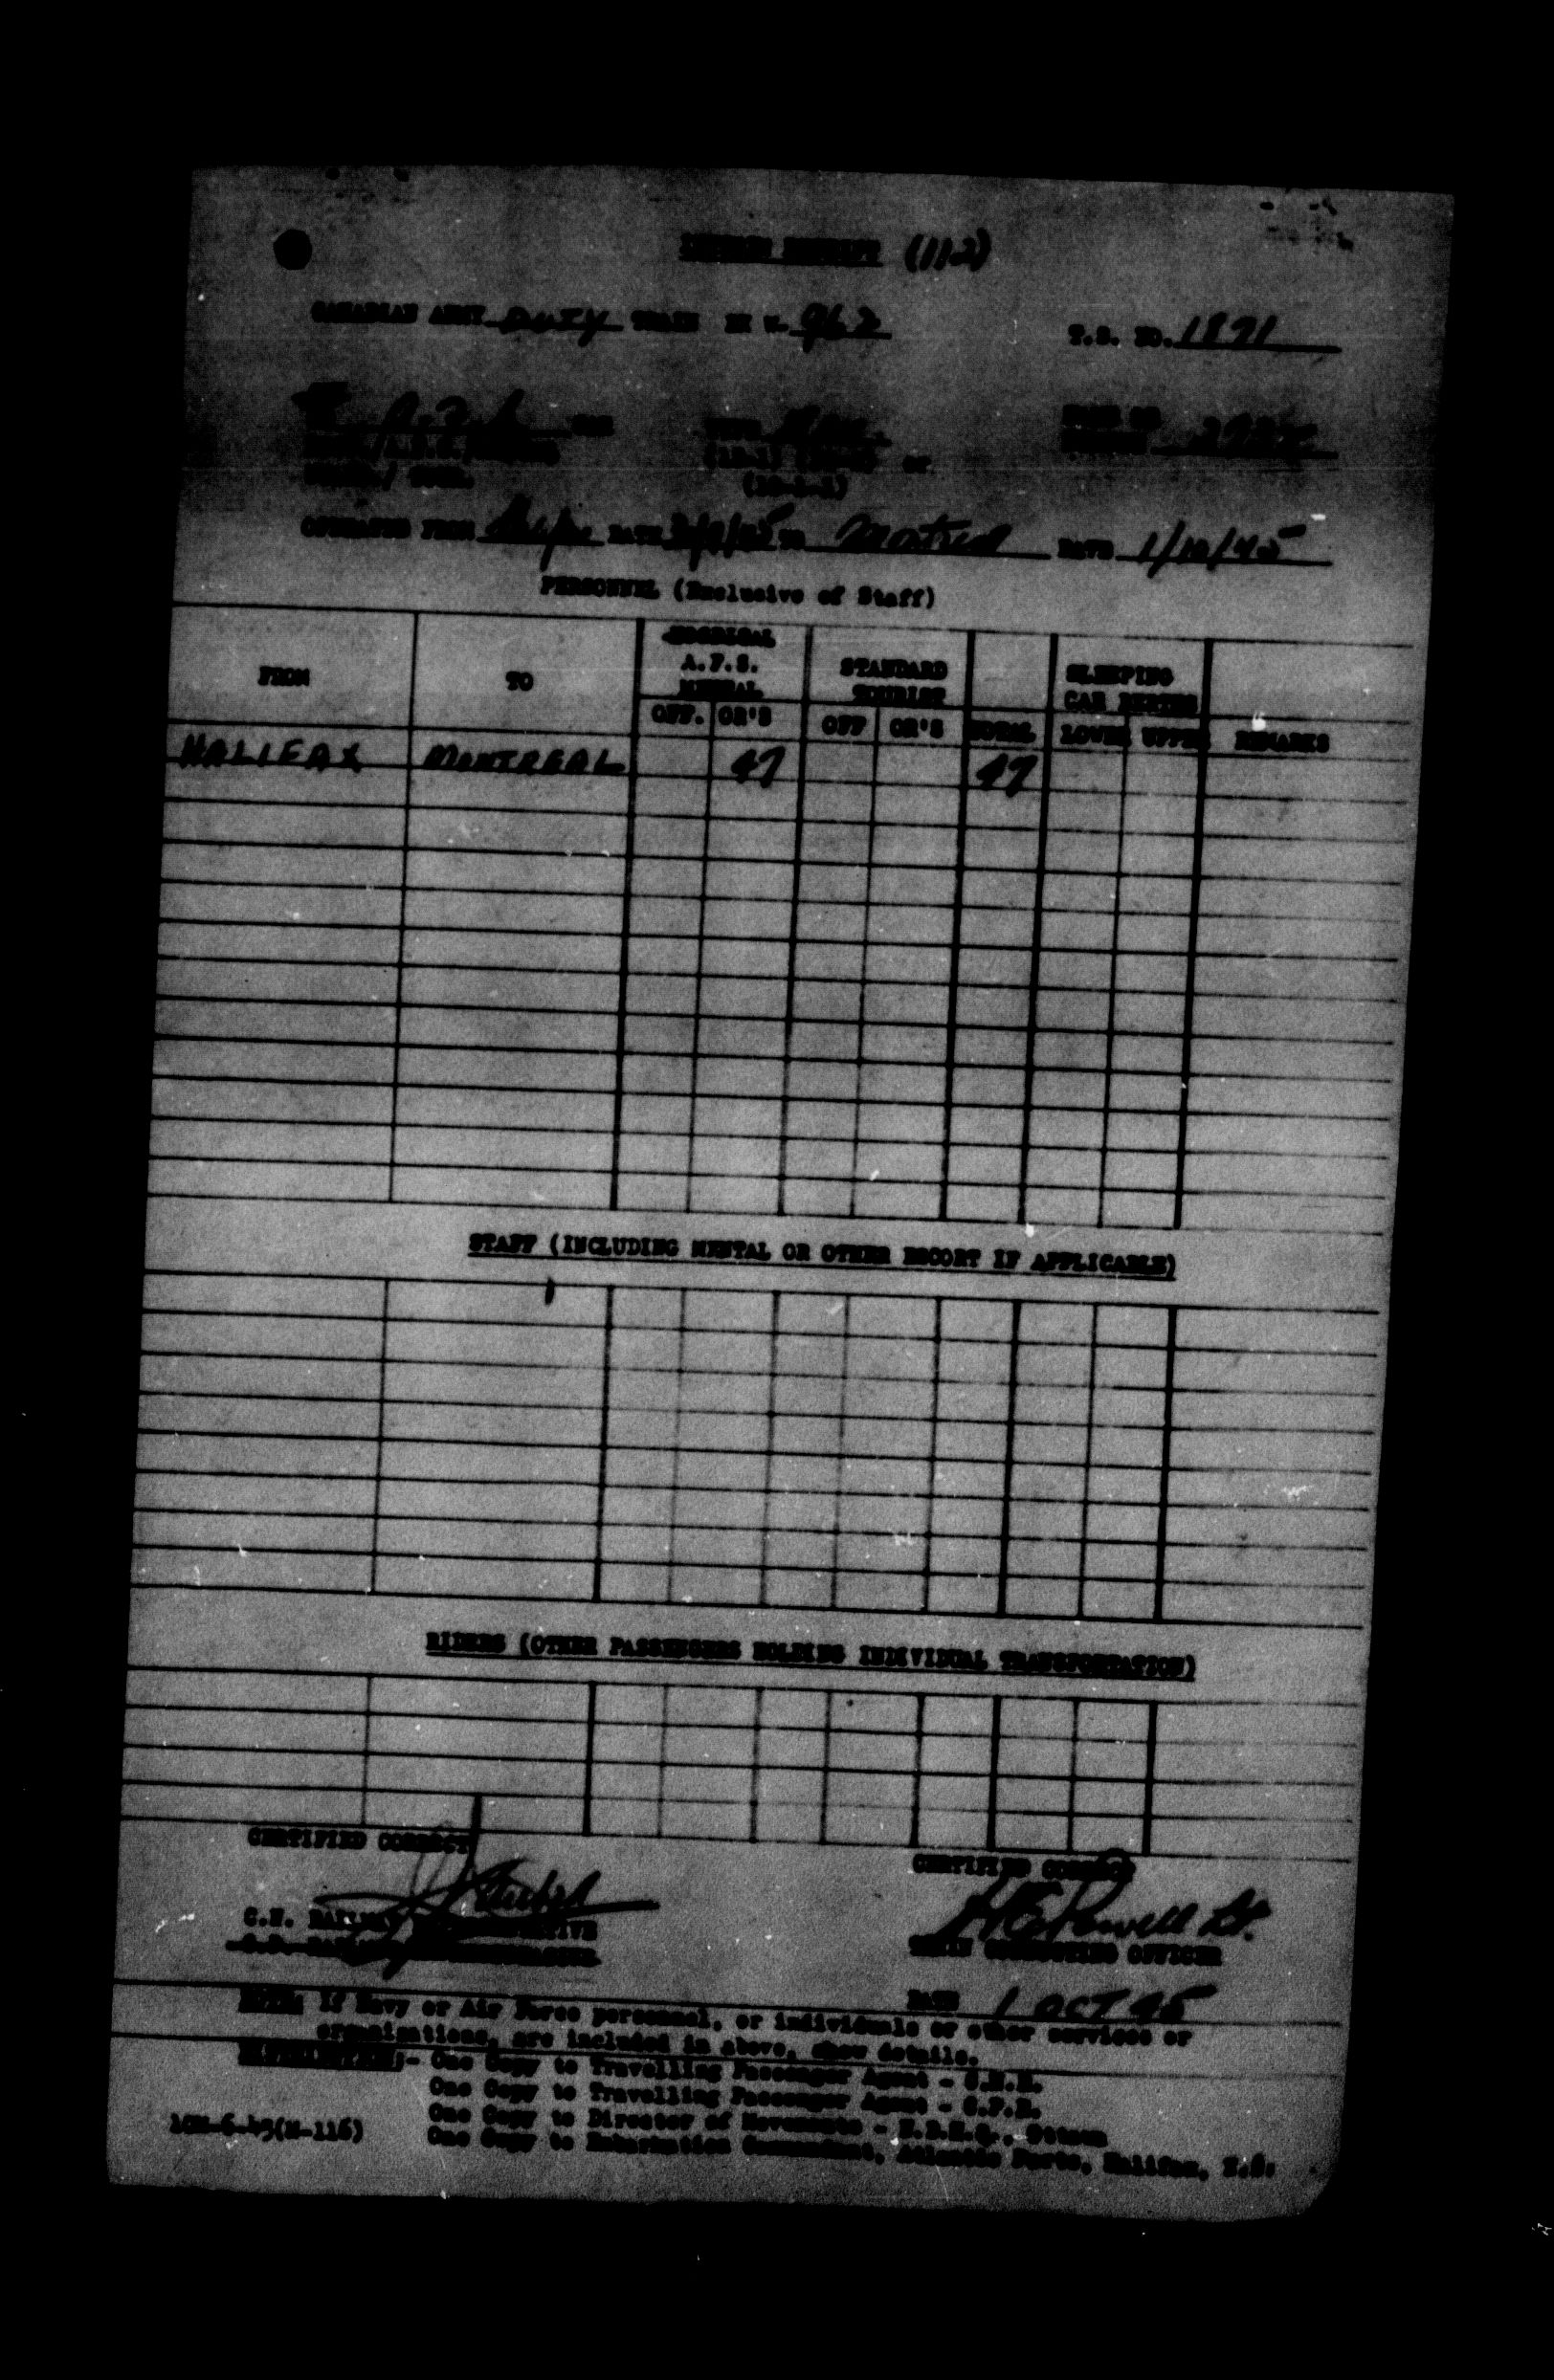 (112)
CANADIAN ARMY DUTY TRAIN 962
T.S. NO. 1871
OPERATED FROM DATE TO Montreal DATE 1/10/45
PERSONNEL (Exclusive of Staff)
FROM TO A.F.S. MENTAL STANDARD TOURIST SLEEPING CAR BERTHS
OFF. OR'S OFF OR'S TOTAL LOWER UPPER REMARKS
HALIFAX MONTREAL 47 47
STAFF (INCLUDING MENTAL OR OTHER ESCORT IF APPLICABLE)
RIDERS (OTHER PASSENGERS HOLDING INDIVIDUAL TRANSPORTATION)
CERTIFIED CORRECT
CERTIFIED CORRECT
Powell Lt.
C.N. RAILWAY REPRESENTATIVE
TRAIN CONDUCTING OFFICER
DATE 1 OCT 45
NOTE: If Navy or Air Force personnel, or individuals or other services or
organizations, are included in above, show details.
DISTRIBUTION:- One Copy to Travelling Passenger Agent - C.N.R.
One Copy to Travelling Passenger Agent - C.P.R.
One Copy to Director of Movements - N.D.H.Q., Ottawa
One Copy to Embarkation Commandant, Atlantic Ports, Halifax, N.S.
10M-6-45(M-116)